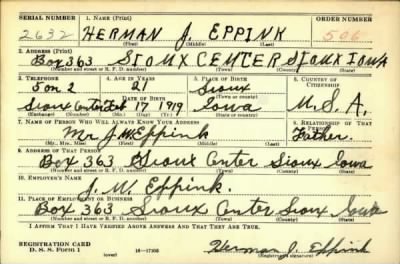 SERIAL NUMBER 1. NAME (Print) ORDER NUMBER
2632 HERMAN J. EPPINK 506
(First) (Middle) (Last)
2. ADDRESS (Print)
Box 363 SIOUX CENTER SIOUX IOWA
(Number and street or R. F. D. number) (Town) (County) (State)
3. TELEPHONE 4. AGE IN YEARS 5. PLACE OF BIRTH 6. COUNTRY OF CITIZENSHIP
5 on 2 21 Sioux
DATE OF BIRTH (Town or county)
Sioux Center Feb 17 1919 Iowa U. S. A.
(Exchange) (Number) (Mo.) (Day) (Yr.) (State or country)
7. NAME OF PERSON WHO WILL ALWAYS KNOW YOUR ADDRESS 8. RELATIONSHIP OF THAT PERSON
Mr J. W. Eppink Father.
(Mr., Mrs., Miss) (First) (Middle) (Last)
9. ADDRESS OF THAT PERSON
Box 363 Sioux Center Sioux Iowa
(Number and street or R. F. D. number) (Town) (County) (State)
10. EMPLOYER'S NAME
J. W. Eppink.
11. PLACE OF EMPLOYMENT OR BUSINESS
Box 363 Sioux Center Sioux Iowa
(Number and street or R. F. D. number) (Town) (County) (State)
I AFFIRM THAT I HAVE VERIFIED ABOVE ANSWERS AND THAT THEY ARE TRUE.
REGISTRATION CARD
D. S. S. Form 1 (over) Herman J. Eppink
(Registrant's signature)